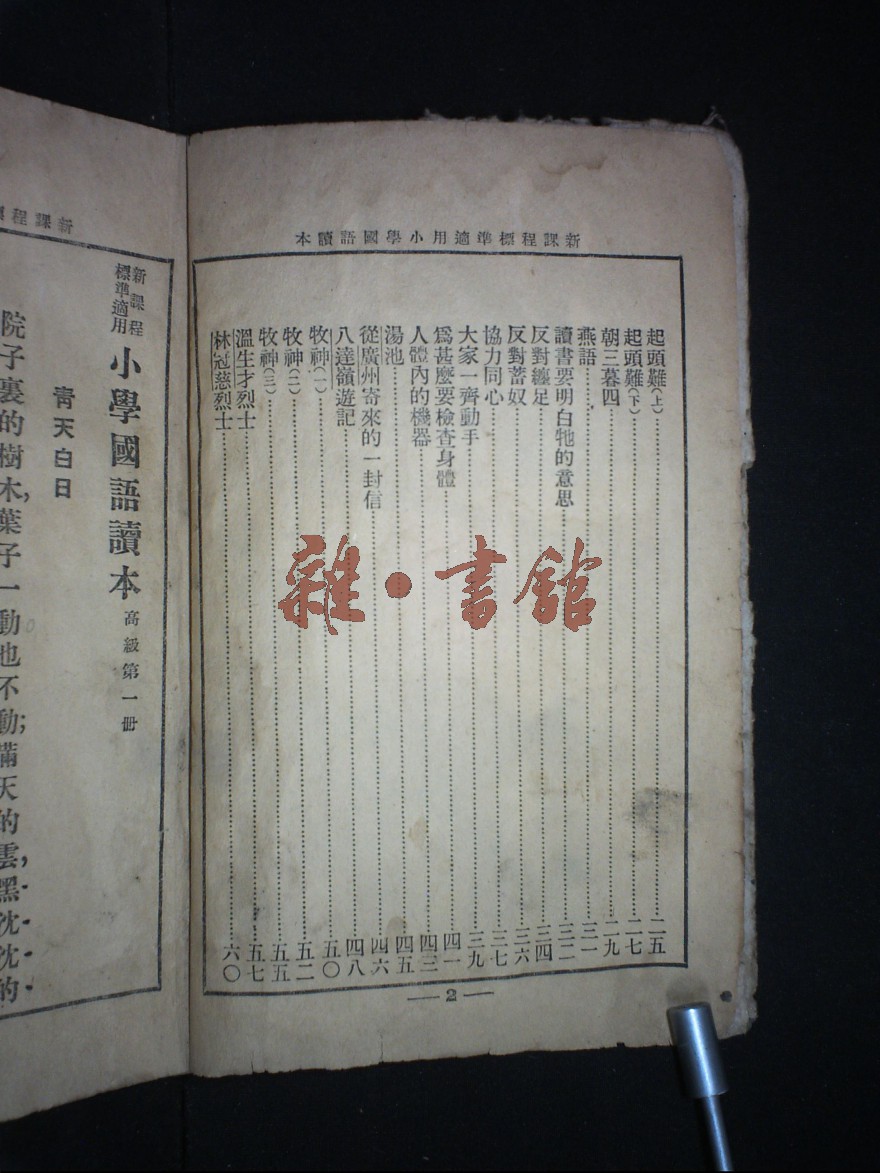 新課程標準適用小學國語讀本
起頭難(上)……二五
起頭難(下)……二七
朝三暮四……二九
燕語……三一
讀書要明白牠的意思……三二
反對纏足……三四
反對蓄奴……三六
協力同心……三七
大家一齊動手……三九
爲甚麼要檢查身體……四一
人體內的機器……四三
湯池……四五
從廣州寄來的一封信……四六
八達嶺遊記……四八
牧神(一)……五〇
牧神(二)……五二
牧神(三)……五五
溫生才烈士……五七
林冠慈烈士……六〇
— 2 —
雜·書館
新課程
新課程標準適用 小學國語讀本 高級第一冊
青天白日
院子裏的樹木,葉子一動也不動;滿天的雲,黑沈沈的